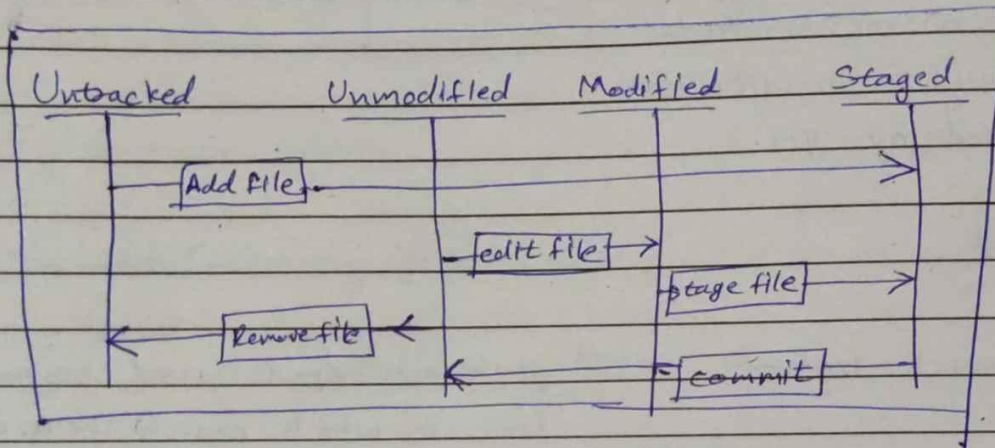 Untracked Unmodified Modified Staged
Add file
edit file
stage file
Remove file
commit